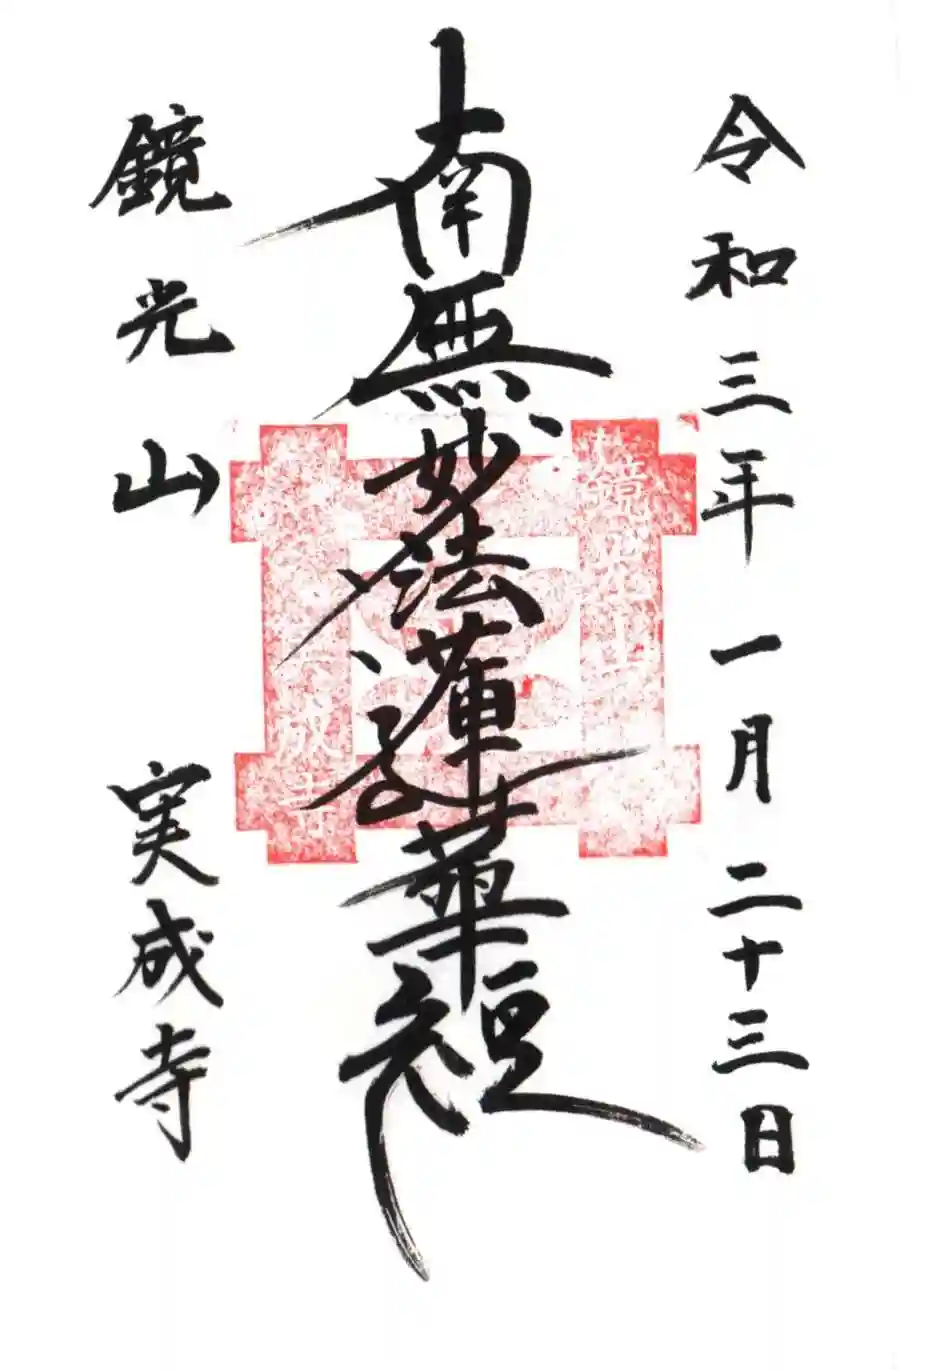 令和三年一月二十三日
南無妙法蓮華経
鏡光山 実成寺